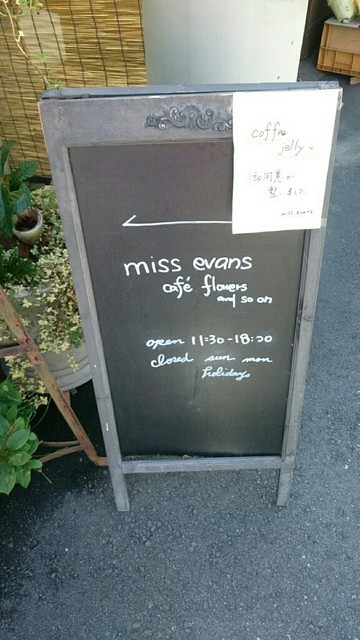 coffee
jelly
miss evans
miss evans
café flowers
and so on
open 11:30-18:00
closed sun mon
holidays